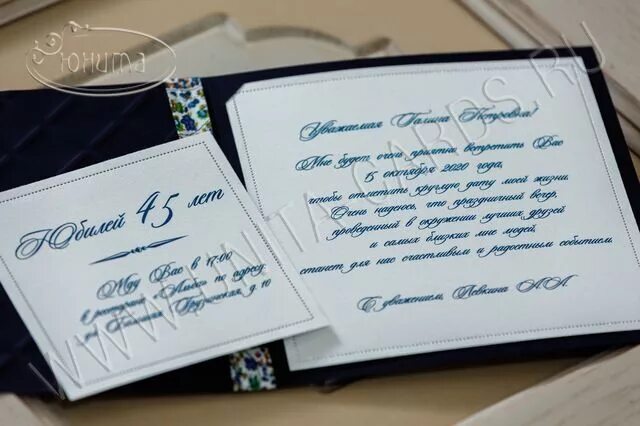 Юнита
Юбилей 45 лет
Жду Вас в 17:00
в ресторане «Альба» по адресу
ул. Большая Грузинская, д. 10
Уважаемая Галина Петровна!
Мне будет очень приятно встретить Вас
15 октября 2020 года,
чтобы отметить круглую дату моей жизни.
Очень надеюсь, что праздничный вечер,
проведенный в окружении лучших друзей
и самых близких мне людей,
станет для нас счастливым и радостным событием
С уважением, Левкина А.А.
WWW.UNITA-CARDS.RU